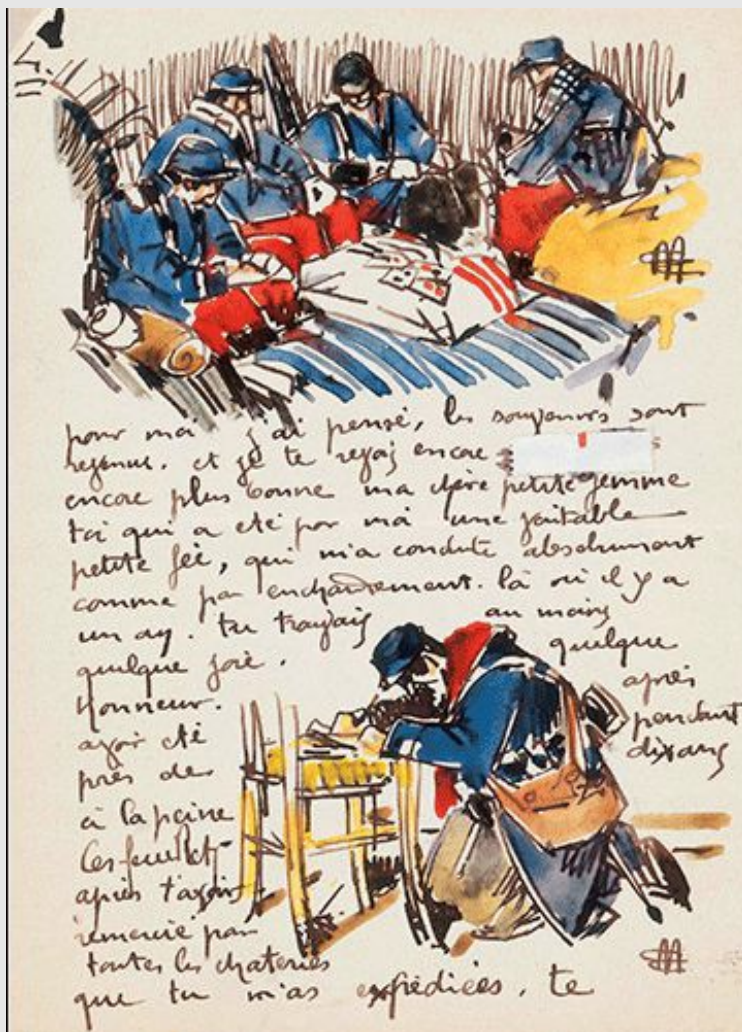 pour moi j'ai pensé, les souvenirs sont
revenus. et je te voyais encore
encore plus bonne ma chère petite femme
toi qui a été por moi une véritable
petite fée, qui m'a conduite absolument
comme par enchantement. là où il y a
un an. tu travais au moins
quelque joie. quelque
Honneur. après
avoir été pendant
près de dix ans
à la peine
Ces feuillets
après t'avoir
remercié par
toutes les chateries
que tu m'as expédiées. te